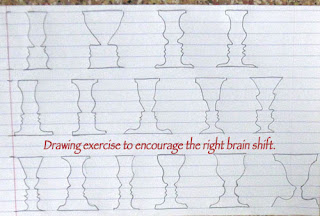 Drawing exercise to encourage the right brain shift.